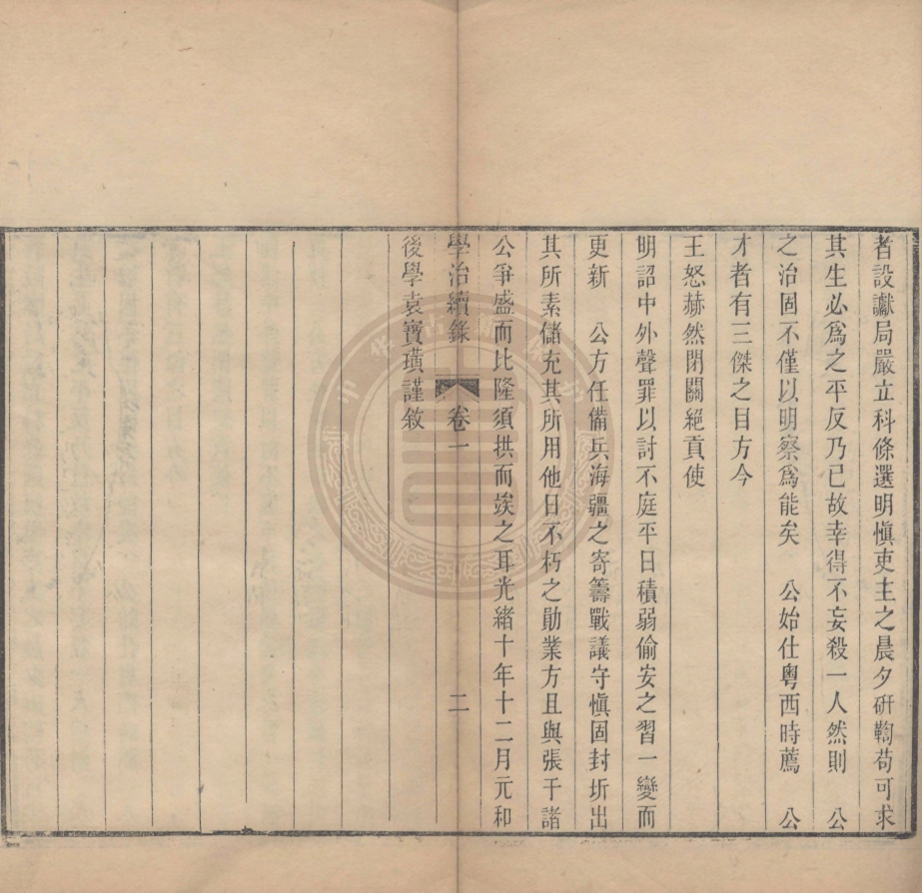 者設讞局嚴立科條選明愼吏主之晨夕硏鞫苟可求
其生必爲之平反乃已故幸得不妄殺一人然則　公
之治固不僅以明察爲能矣　公始仕粵西時薦　公
才者有三傑之目方今
王怒赫然閉關絕貢使
明詔中外聲罪以討不庭平日積弱偷安之習一變而
更新　公方任備兵海疆之寄籌戰議守愼固封圻出
其所素儲充其所用他日不朽之勛業方且與張于諸
公爭盛而比隆須拱而竢之耳光緒十年十二月元和
學治續錄　卷一　二
後學袁寶璜謹敘